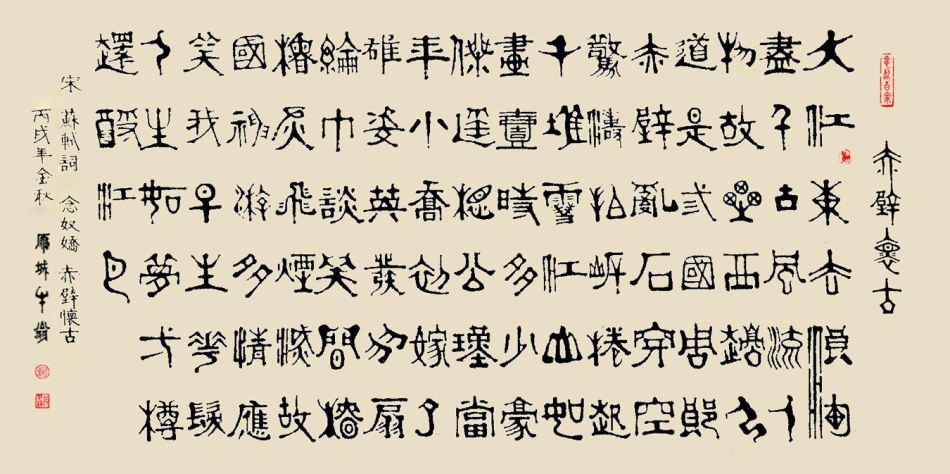 赤壁褱古
大江東去浪淘
盡千古風流人
物故壘西邊人
道是弎國周郎
赤壁亂石穿空
驚濤拍岸捲起
千堆雪江山如
畫壹時多少豪
傑遙想公瑾當
年小喬初嫁了
雄姿英發羽扇
綸巾談笑間檣
櫓灰飛煙滅故
國神游多情應
笑我早生華髮
人生如夢弌樽
還酹江月
宋 蘇軾詞 念奴嬌 赤壁懷古
丙戌年金秋 雁城